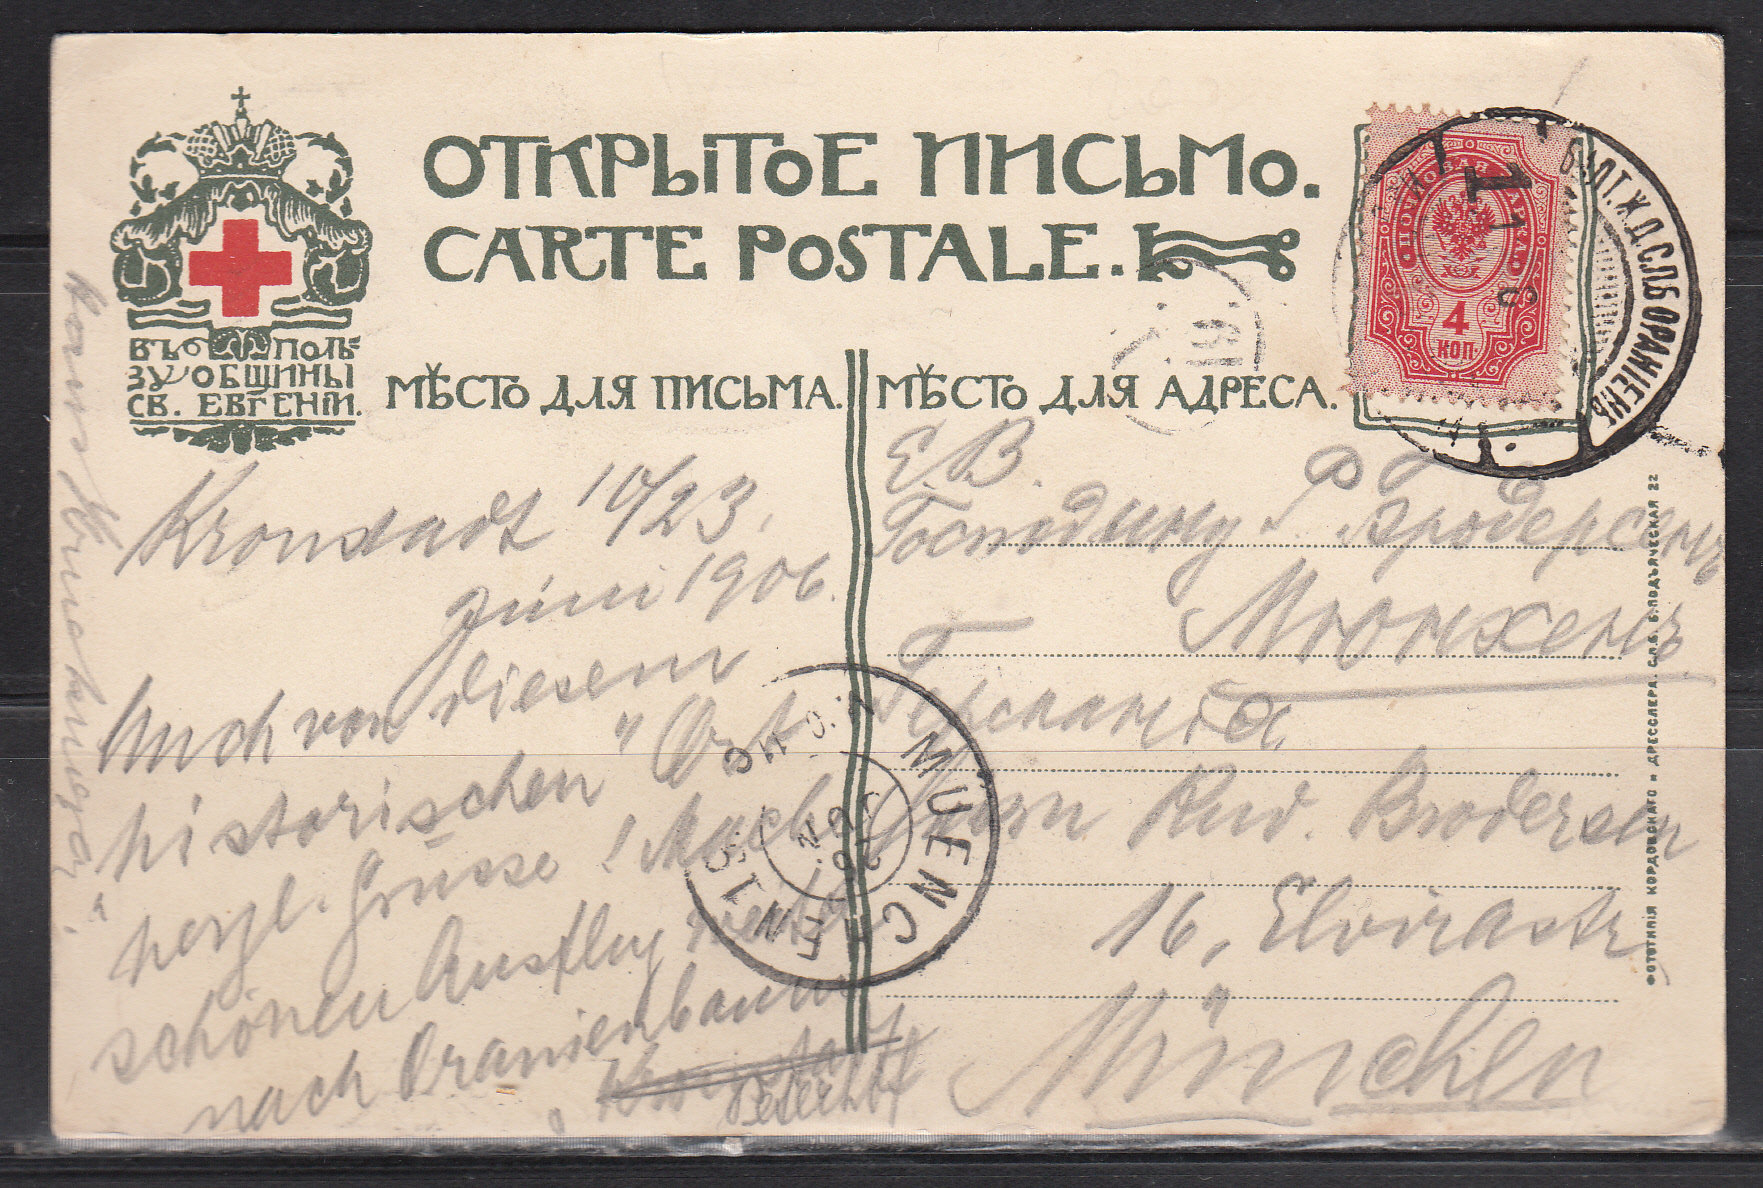 ОТКРЫТОЕ ПИСЬМО.
CARTE POSTALE.
ВЪ ПОЛЬ-
ЗУ ОБЩИНЫ
СВ. ЕВГЕНІИ.
МѢСТО ДЛЯ ПИСЬМА.
МѢСТО ДЛЯ АДРЕСА.
4
КОП.
БАЛТ.Ж.Д.СПБ ОРАНІЕНБ
Kronstadt 10/23.
Juni 1906.
Auch von diesem
"historischen" Ort
herzl. Grüsse! Mach
schönen Ausflug
nach Oranienbaum
Peterhof
Е В.
Господину Р Бродерсенъ
Мюнхенъ
Германія
Herrn Rud. Brodersen
16, Elvirastr
München
MUENCHEN
ФОТОТИПІЯ КОРДОВСКАГО и ДРЕССЛЕРА. С.П.Б. Б.ПОДЬЯЧЕСКАЯ 22